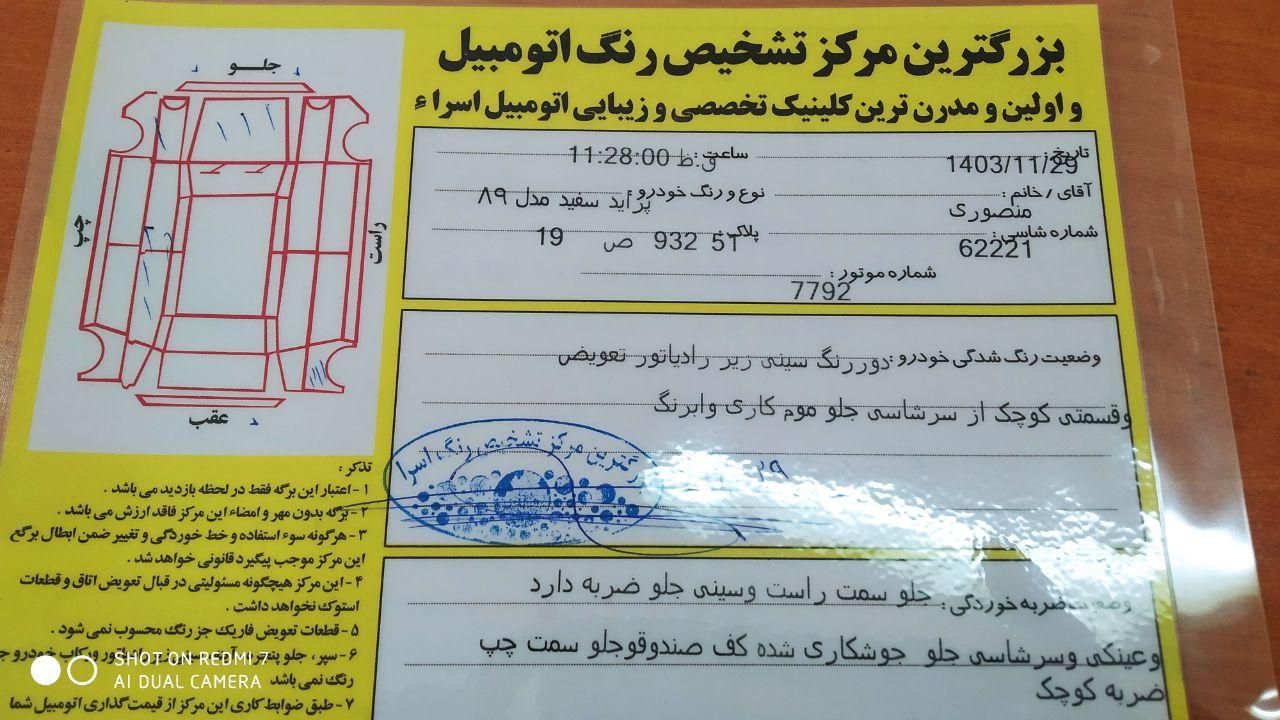 بزرگترین مرکز تشخیص رنگ اتومبیل
و اولین و مدرن ترین کلینیک تخصصی و زیبایی اتومبیل اسراء
تاریخ: 1403/11/29 ساعت: 11:28:00 ق.ظ
آقای / خانم: منصوری نوع و رنگ خودرو: پراید سفید مدل ۸۹
شماره شاسی: 62221 پلاک: 51 932 ص 19
شماره موتور: 7792
وضعیت رنگ شدگی خودرو: دوررنگ سینی زیر رادیاتور تعویض
وقسمتی کوچک از سرشاسی جلو موم کاری وابرنگ
وضعیت ضربه خوردگی: جلو سمت راست وسینی جلو ضربه دارد
وعینکی وسرشاسی جلو جوشکاری شده کف صندوقوجلو سمت چپ
ضربه کوچک
جلو
چپ
راست
عقب
تذکر:
۱- اعتبار این برگه فقط در لحظه بازدید می باشد.
۲- برگه بدون مهر و امضاء این مرکز فاقد ارزش می باشد.
۳- هرگونه سوء استفاده و خط خوردگی و تغییر ضمن ابطال برگه
این مرکز موجب پیگیرد قانونی خواهد شد.
۴- این مرکز هیچگونه مسئولیتی در قبال تعویض اتاق و قطعات
استوک نخواهد داشت.
۵- قطعات تعویض فابریک جز رنگ محسوب نمی شود.
۶- سپر، جلو پنجره
رنگ نمی باشد
۷- طبق ضوابط کاری این مرکز از قیمت گذاری اتومبیل شما
بزرگترین مرکز تشخیص رنگ اسرا
SHOT ON REDMI 7
AI DUAL CAMERA